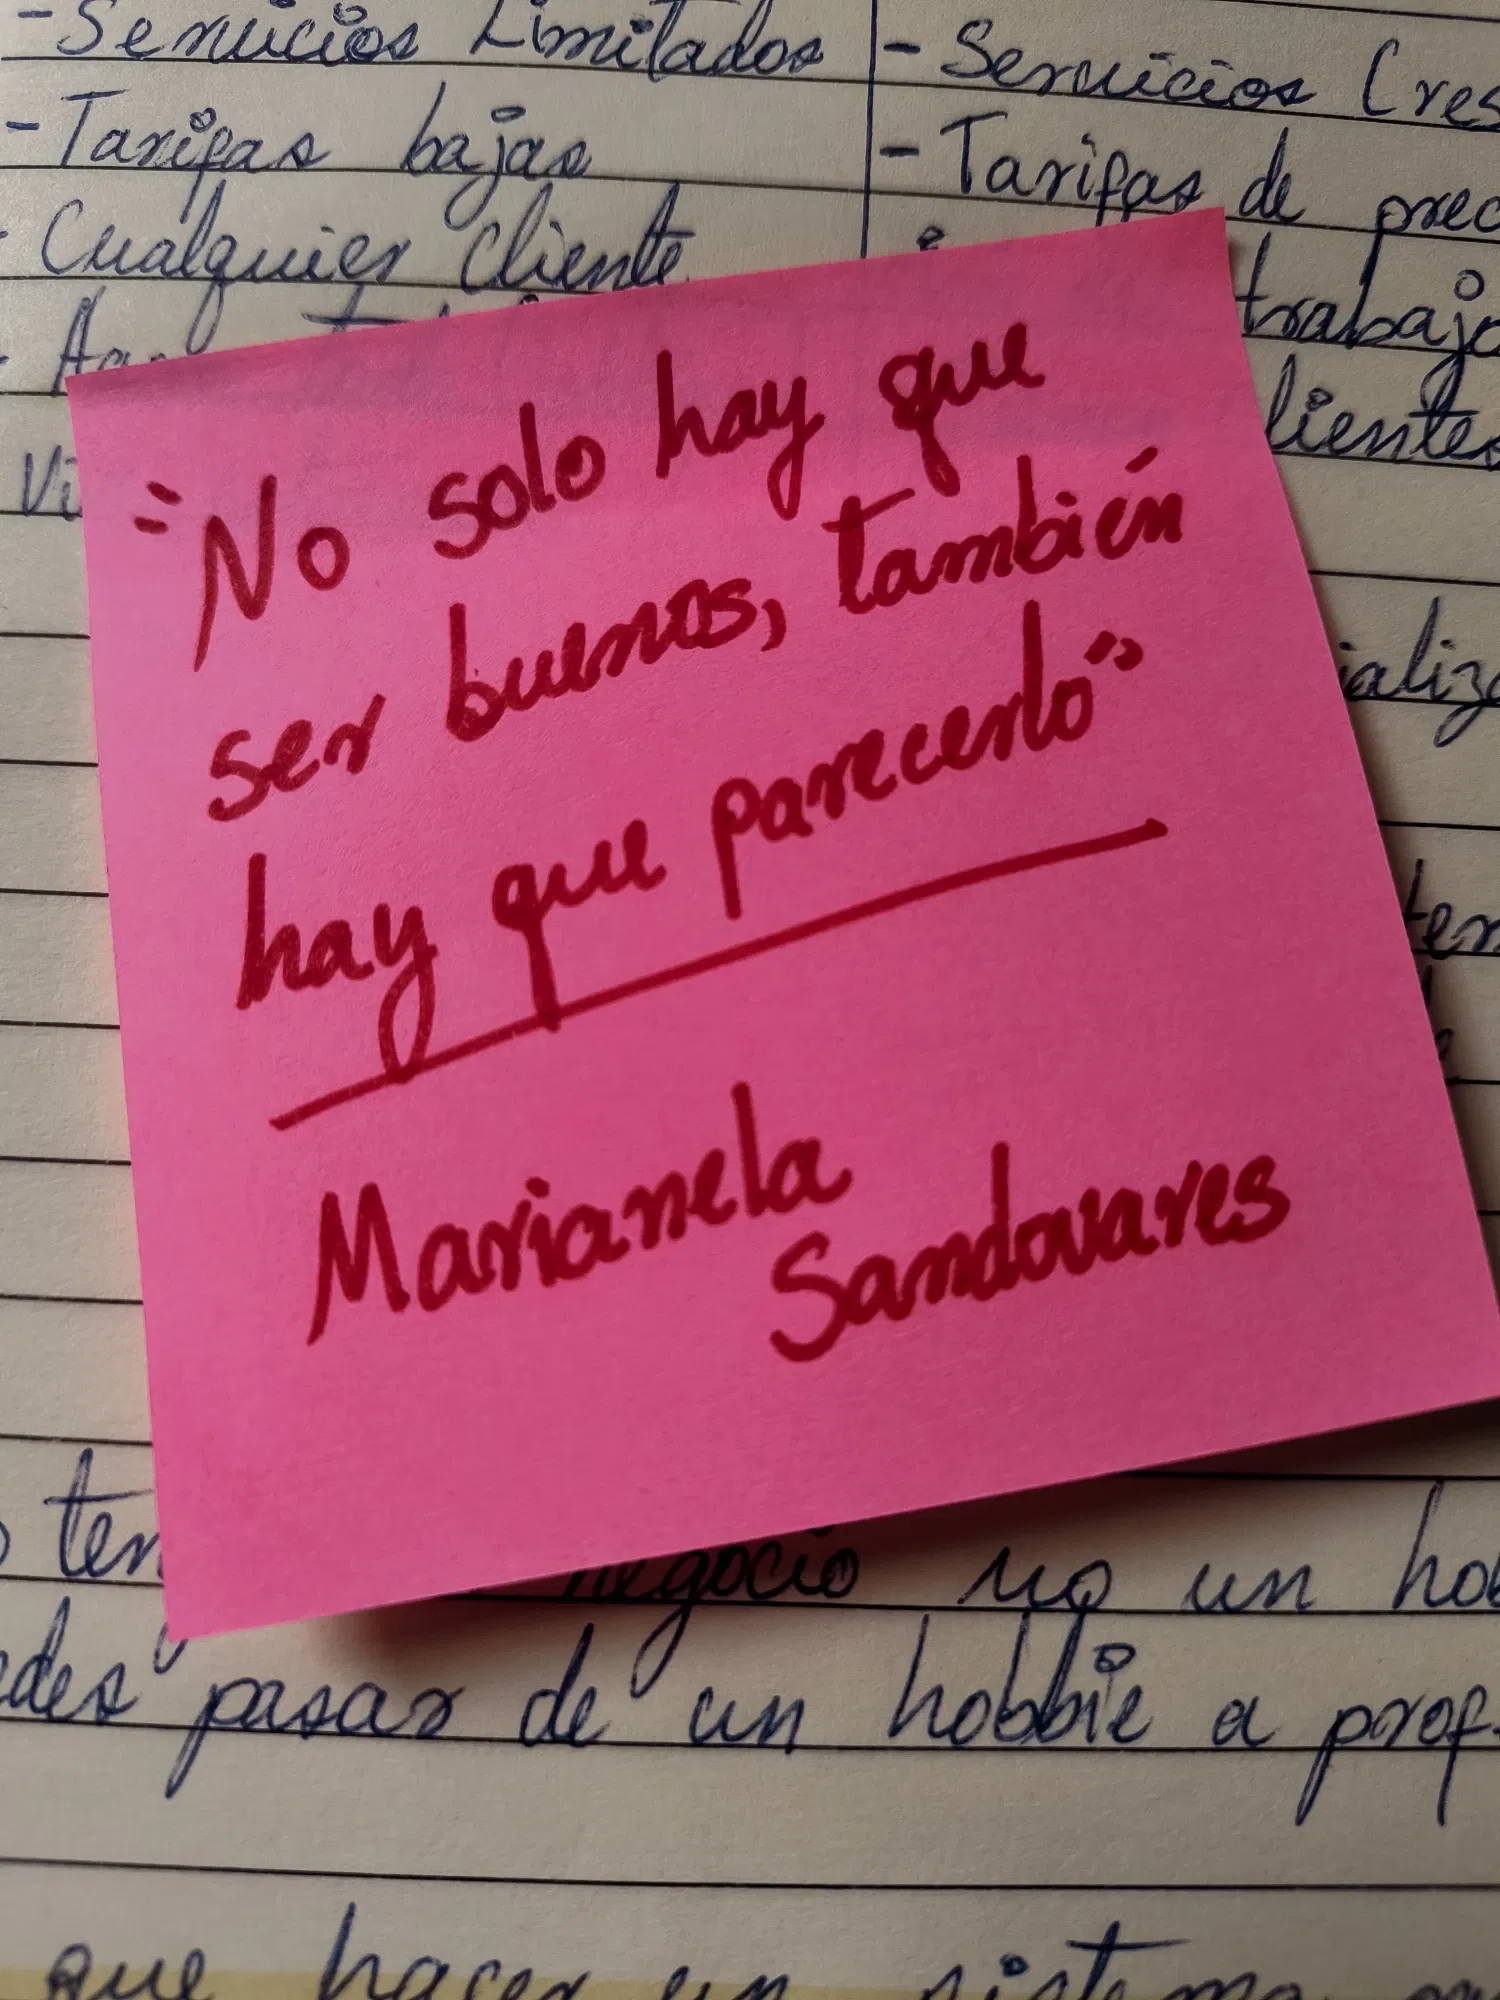 - Servicios Limitados
- Servicios Cres
- Tarifas bajas
- Tarifas de prec
- Cualquier cliente
trabajo
lientes
Vi
"No solo hay que
ser buenos, también
hay que parecerlo"
Marianela
Sandovares
ializa
ten
negocio no un hob
edes pasar de un hobbie a prof
que hacer un sistema